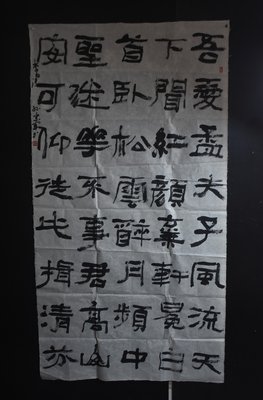 吾愛孟夫子風流天
下聞紅顏棄軒冕白
首臥松雲醉月頻中
聖迷花不事君高山
安可仰徒此揖清芬